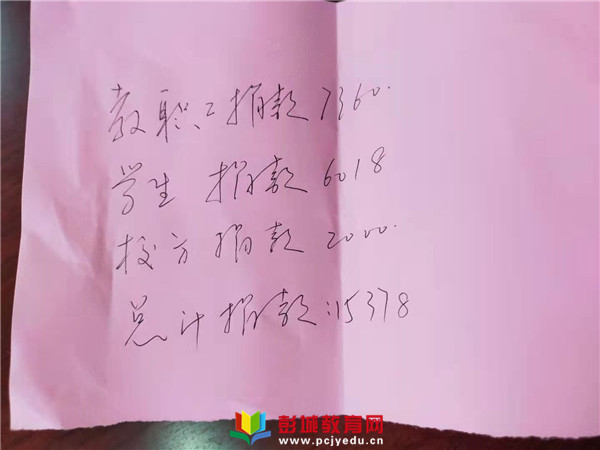 教职工捐款7360.
学生 捐款6018
校方 捐款2000.
总计捐款:15378
彭城教育网
www.pcjyedu.cn